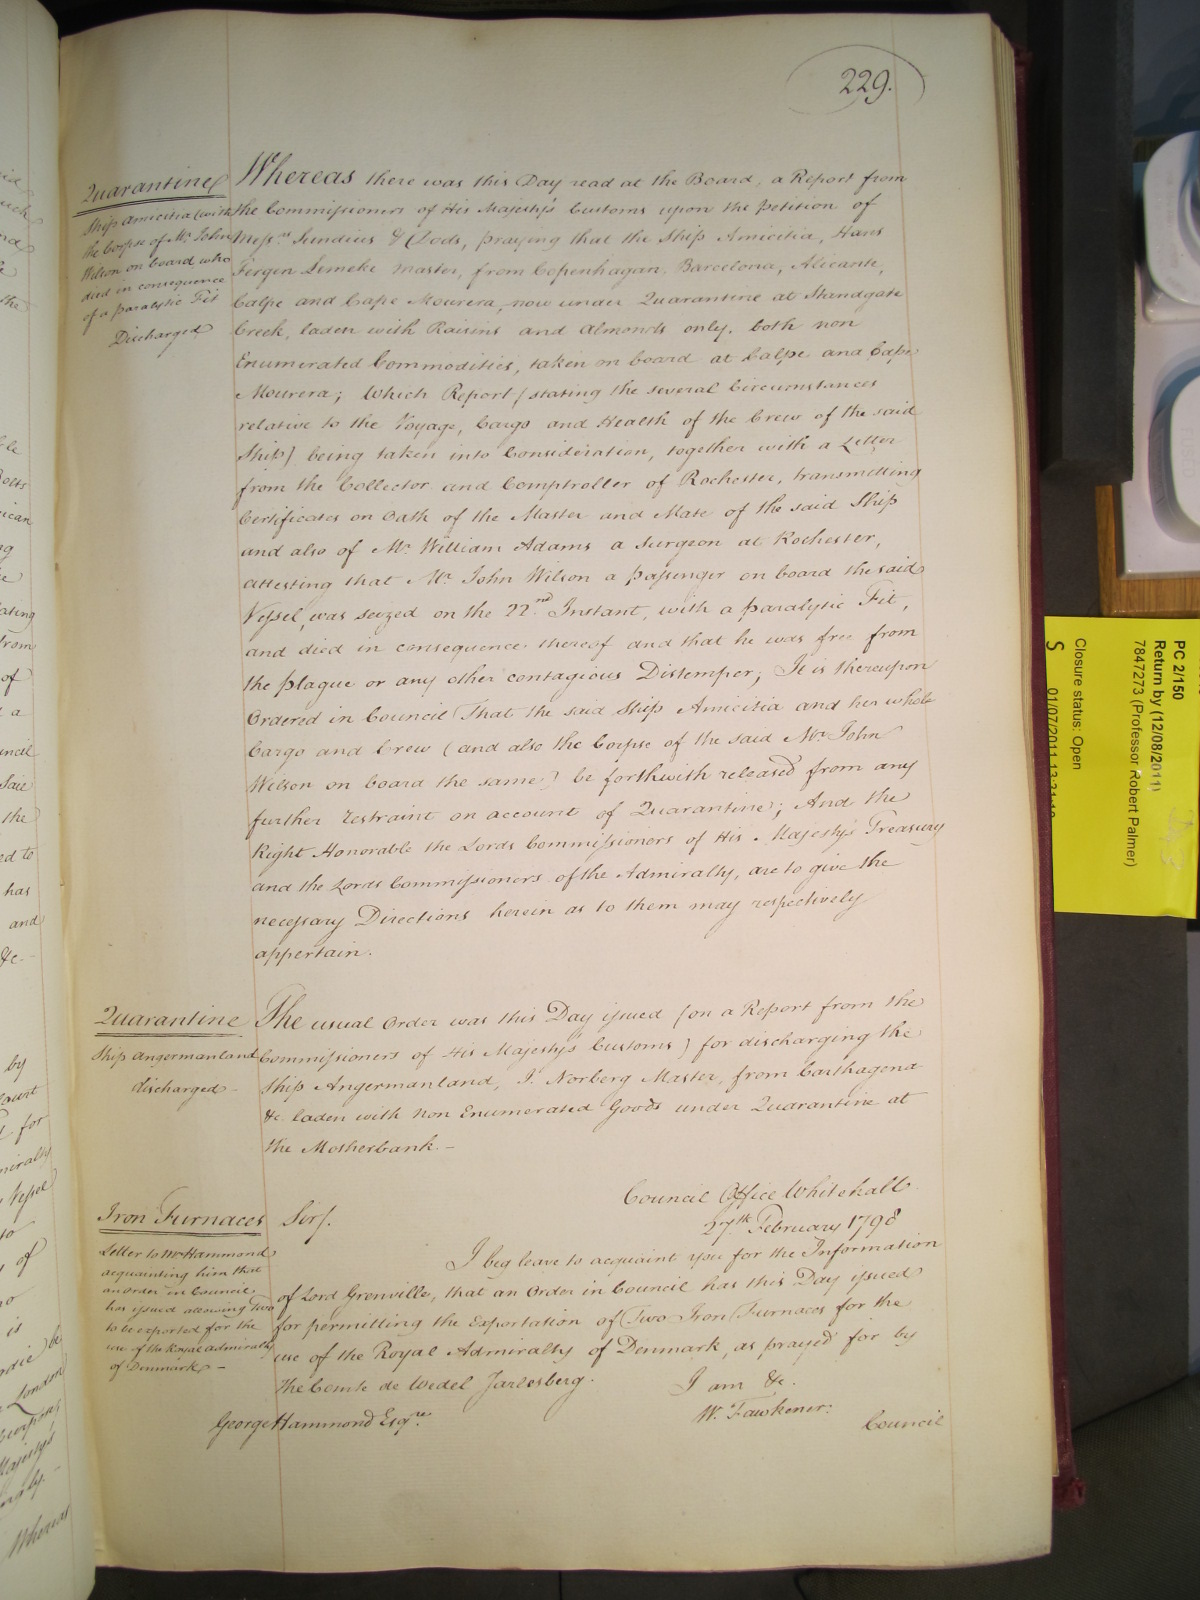 229.
Quarantine
Ship Amicitia (with
the Corpse of Mr. John
Wilson on board who
died in consequence
of a paralytic Fit
Discharged
Whereas there was this Day read at the Board, a Report from
the Commissioners of His Majesty's Customs upon the Petition of
Messrs. & Dods, praying that the Ship Amicitia, Hans
Jergen Lemcke Master, from Copenhagen, Barcelona, Alicante,
Calpe and Cape Mourera, now under Quarantine at Standgate
Creek, laden with Raisins and Almonds only, both non
Enumerated Commodities, taken on board at Calpe and Cape
Mourera; Which Report (stating the several Circumstances
relative to the Voyage, Cargo and Health of the Crew of the said
Ship) being taken into Consideration, together with a Letter
from the Collector and Comptroller of Rochester, transmitting
Certificates on Oath of the Master and Mate of the said Ship
and also of Mr. William Adams a Surgeon at Rochester,
attesting that Mr. John Wilson a passenger on board the said
Vessel, was seized on the 22nd Instant, with a paralytic Fit,
and died in consequence thereof and that he was free from
the plague or any other contagious Distemper; It is thereupon
Ordered in Council That the said Ship Amicitia and her whole
Cargo and Crew (and also the Corpse of the said Mr. John
Wilson on board the same) be forthwith released from any
further restraint on account of Quarantine; And the
Right Honorable the Lords Commissioners of His Majesty's Treasury
and the Lords Commissioners of the Admiralty, are to give the
necessary Directions herein as to them may respectively
appertain.
Quarantine
Ship Angermanland
discharged -
The usual Order was this Day issued (on a Report from the
Commissioners of His Majesty's Customs) for discharging the
Ship Angermanland, J. Norberg Master, from Carthagena
&c. laden with non Enumerated Goods under Quarantine at
the Motherbank. -
Council Office Whitehall
27th February 1798
Iron Furnaces
Letter to Mr. Hammond
acquainting him that
an Order in Council
has issued allowing Two
to be exported for the
use of the Royal Admiralty
of Denmark -
Sir,
I beg leave to acquaint you for the Information
of Lord Grenville, that an Order in Council has this Day issued
for permitting the Exportation of Two Iron Furnaces for the
use of the Royal Admiralty of Denmark, as prayed for by
the Comte de Wedel Jarlesberg.
I am &c.
W. Fawkener.
George Hammond Esqre.
Council
PC 2/150
Return by (12/08/2011)
7847273 (Professor Robert Palmer)
Closure status: Open
01/07/2011
S